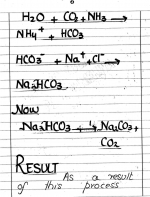 H₂O + CO₂ + NH₃ ⟶
NH₄⁺ + HCO₃
HCO₃⁻ + Na⁺ + Cl⁻ ⟶
NaHCO₃
Now
NaHCO₃ ⟶ Na₂CO₃ +
CO₂
RESULT
As a result
of this process